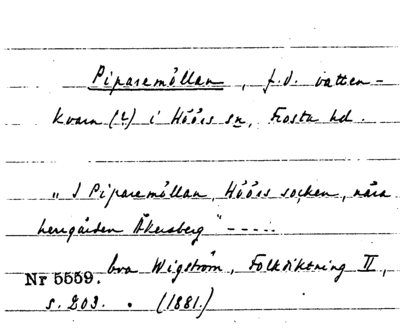 Piparemöllan, f.d. vatten-
kvarn (?) i Höörs sn, Frosta hd.
"I Piparemöllan, Höörs socken, nära
herrgården Åkersberg" -----
Eva Wigström, Folkdiktning II,
Nr 5559.
s. 203. . (1881.)